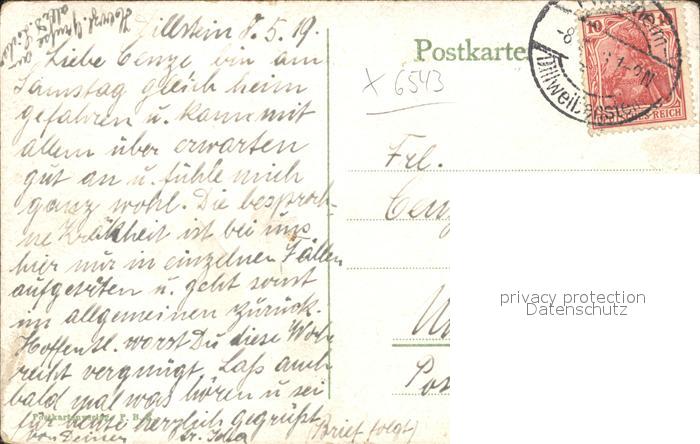 Herzl. Grüsse
an
alle d. Liebe
Dillstein 8.5.19.
Liebe Cenze bin am
Samstag gleich heim
gefahren u. kam mit
allem über erwarten
gut an u. fühle mich
ganz wohl. Die besproch-
ne Krankheit ist bei uns
hier nur in einzelnen Fällen
aufgetreten u. geht sonst
im allgemeinen zurück.
Hoffentl. warst Du diese Woche
recht vergnügt. Laß auch
bald mal was hören u sei
für heute herzlich gegrüßt
von Deiner
(Brief folgt)
Postkartenverlag P. B.
Postkarte
x 6543
10
REICH
Dillweißenstein
Frl.
Cenz
Pos
privacy protection
Datenschutz